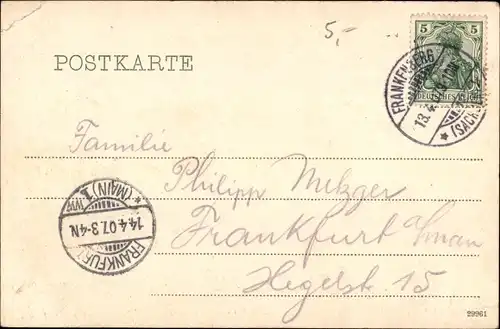 5,-
5 5
DEUTSCHES REICH
POSTKARTE
FRANKENBERG
13.4.
* (SACHS
Familie
Philipp Metzger
Frankfurt a/main
Hegelstr. 15
* (MAIN) 1
14.4.07. 3-4N
FRANKFURT
29961